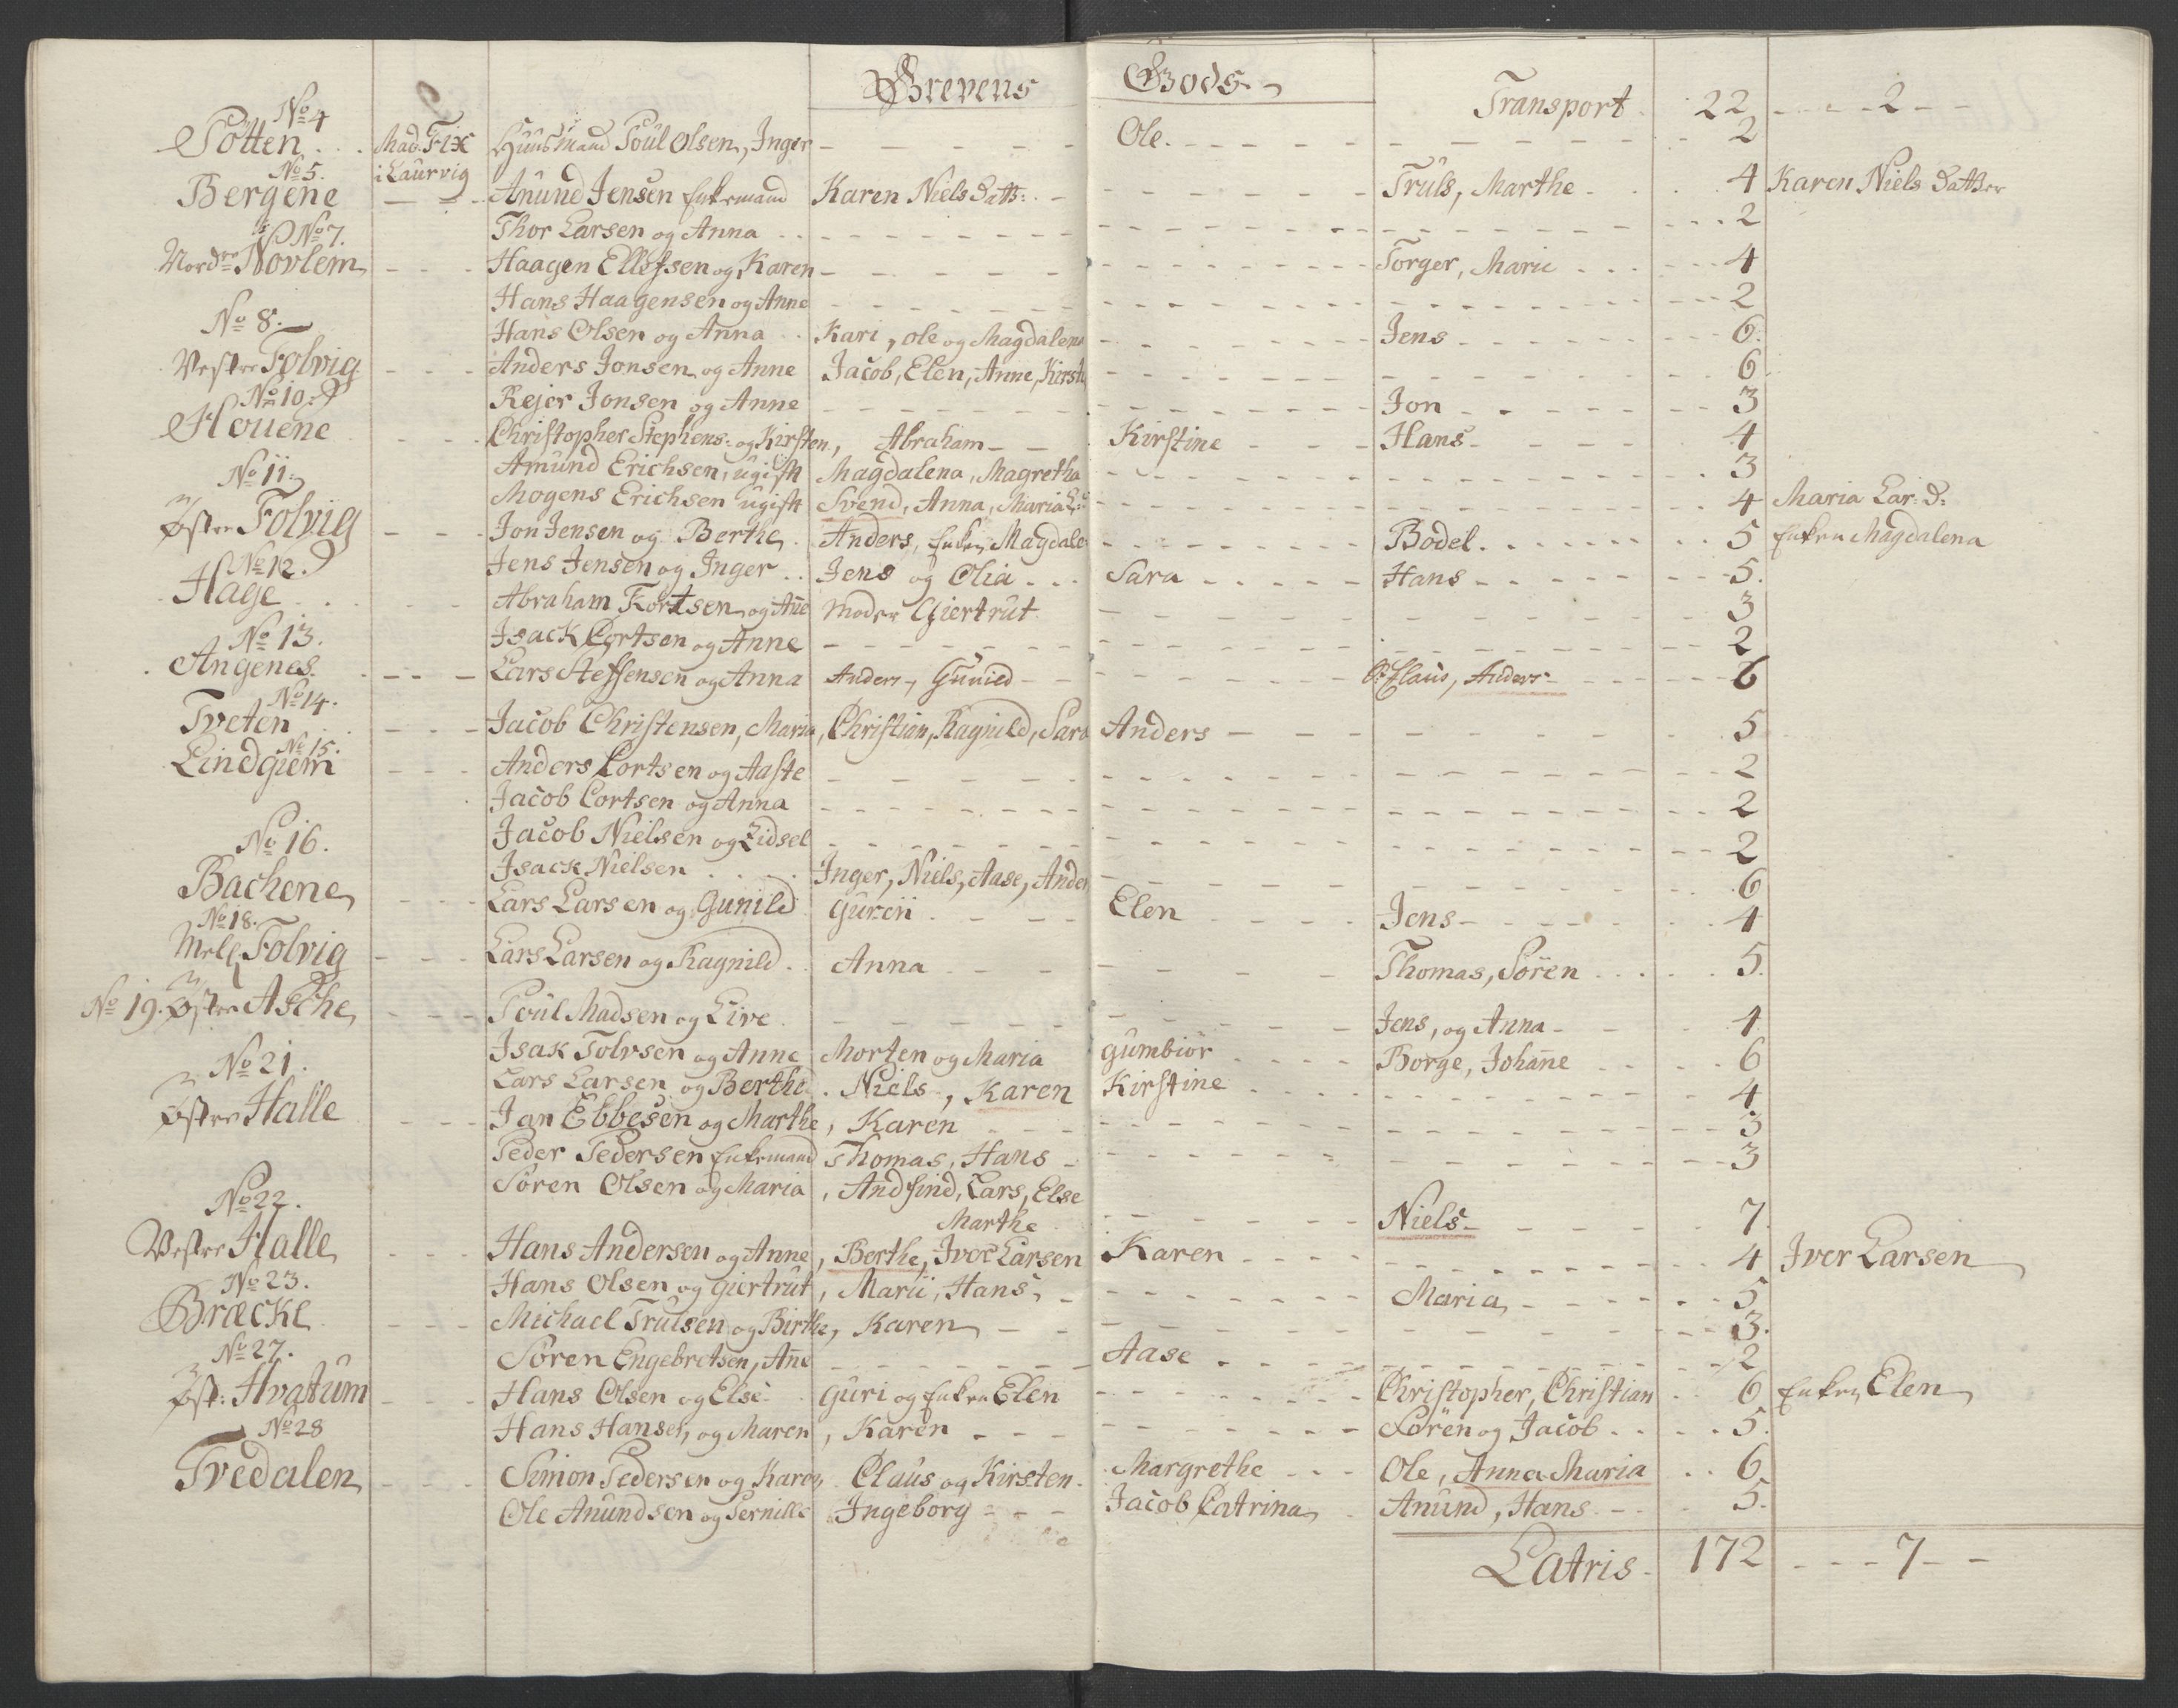 Grevens Gods
Transport 22 - - - 2 - -
No 4
Potten . . . Mad. Fix Huusmand Poul Olsen, Inger - - - Ole. - - - 2
No 5. i Laurvig
Bergene - - - Anund Jensen Enkemand Karen Niels Datt: - - - Truls, Marthe - 4 Karen Niels Datter
Thor Larsen og Anna - - - 2
No 7.
Nordre Norlem - - - Haagen Ellefsen og Karen - - - Torger, Marie - - - 4
Hans Haagensen og Anne - - - 2
No 8.
Hans Olsen og Anna Kari, Ole og Magdalena - - - Jens - - - 6.
Vestre Folvig - - - Anders Jonsen og Anne Jacob, Elen, Anne, Kirst - - - 6
No 10.
Rejer Jonsen og Anne - - - Jon - - - 3
Houene - - - Christopher Stephens: og Kirsten, Abraham - - Kirstine - - - Hans - - - 4
No 11.
Amund Erichsen, ugift Magdalena, Magretha - - - 3
Mogens Erichsen ugift Svend, Anna, Maria L: - - - 4 Maria Lar: D:
Østre Folvig - - - Jon Jensen og Berthe Anders, Enken Magdale - - - Bodel. - - - 5 Enken Magdalena
No 12.
Jens Jensen og Inger . . Jens og Olia . . . Sara - - - Hans - - - 5.
Hage - - - Abraham Kortsen og Añe Moder Giertrut - - - 3
No 13.
Isack Cortsen og Anne - - - 2
Angenes - - - Lars Steffensen og Anna Anders, Gunild - - - Claus, Anders - - - 6
No 14.
Tveten - - - Jacob Christensen, Maria, Christian, Ragnild, Sara Anders - - - 5
No 15.
Lindgiem - - - Anders Cortsen og Aaste - - - 2
Jacob Cortsen og Anna - - - 2
No 16.
Jacob Nielsen og Zidsel - - - 2
Isack Nielsen . . . Inger, Niels, Aase, Ander - - - 6
Bachene - - - Lars Larsen og Gunild Gurcii - - - Elen - - - Jens - - - 4
No 18.
Mell. Folvig - - - Lars Larsen og Ragnild . Anna - - - Thomas, Sören . . . 5.
No 19. Østre Asche - - - Poul Madsen og Live - - - Jens, og Anna - - 4
No 21.
Isak Tolvsen og Anne Morten og Maria Gumbiör - - - Borge, Johañe - - - 6
Lars Larsen og Berthe . Niels, Karen Kirstine - - - 4
Østre Halle - - - Jan Ebbesen og Marthe, Karen - - - 3
Peder Pedersen Enkemand Thomas, Hans - - - 3
No 22.
Sören Olsen og Maria, Andfind, Lars, Else
Marthe - - - Niels - - - 7.
Vestre Halle - - - Hans Andersen og Anne, Berthe, Iver Larsen Karen - - - 4 Iver Larsen
No 23.
Hans Olsen og Giertrut, Marii, Hans, - - - Maria, - - - 5
Bræcke - - - Michael Trulsen og Birthe, Karen - - - 3.
No 27.
Sören Engebretsen, Añe - - - Aase - - - 2
Øst: Hvatum - - - Hans Olsen og Else Guri og Enken Elen - - - Christopher, Christian 6 Enken Elen
No 28
Hans Hansen, og Maren, Karen - - - Sören og Jacob . . . 5.
Tvedalen - - - Simon Pedersen og Karen Claus og Kirsten. Margrethe - - - Ole, Anna Maria . . 6
Ole Anundsen og Pernille Ingeborg - - - Jacob Catrina . Anund, Hans - - 5.
Latris - 172 - - - 7 - -